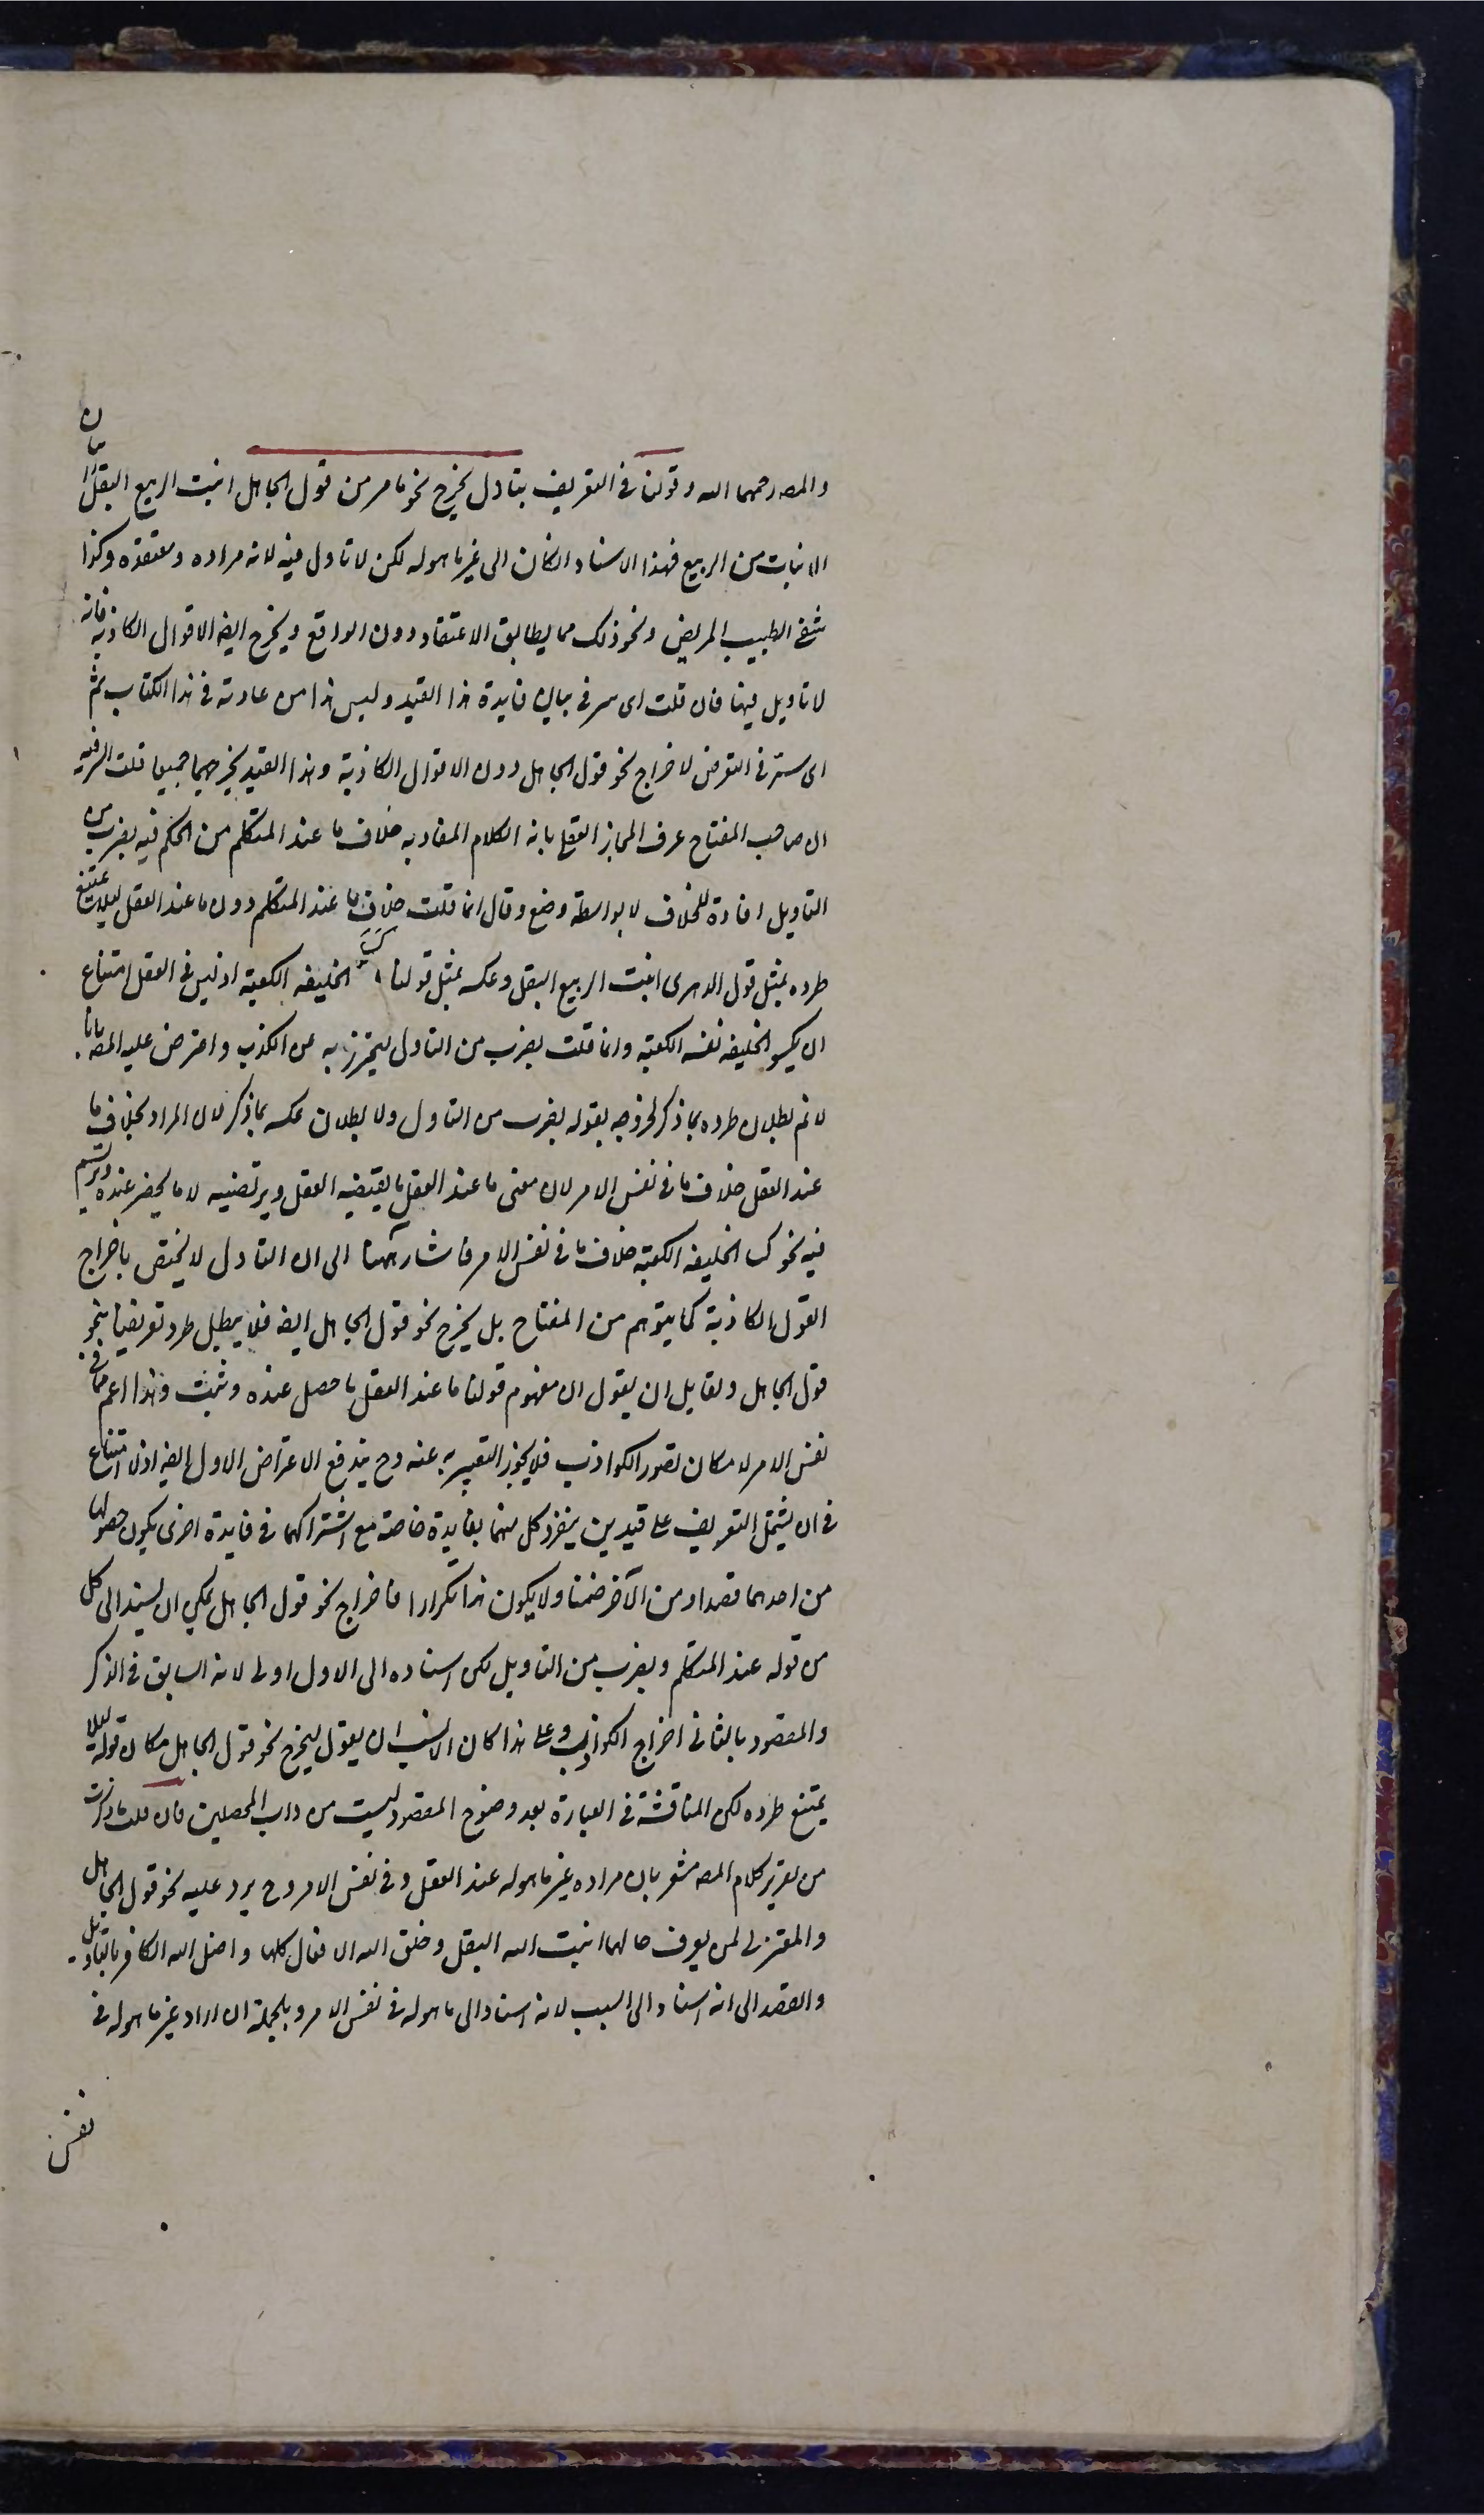 والمص رحمهما الله وقولنا فى التعريف بتاول يخرج نحو ما مر من قول الجاهل انبت الربيع البقل رائيا ان
الانبات من الربيع فهذا الاسناد الكان الى غير ما هو له لكن لا تاول فيه لانه مراده ومعتقده وكذا
شفى الطبيب المريض ونحو ذلك مما يطابق الاعتقاد دون الواقع ويخرج ايضا الاقوال الكاذبة فانه
لا تاويل فيها فان قلت اى سر فى بيان فايدة هذا القيد وليس هذا من عادته فى هذا الكتاب ثم
اى سر فى التعرض لاخراج نحو قول الجاهل دون الاقوال الكاذبة وهذا القيد يخرجهما جميعا قلت السر فيه
ان صاحب المفتاح عرف المجاز العقلى بانه الكلام المفاد به خلاف ما عند المتكلم من الحكم فيه بضرب من
التاويل افادة للخلاف لا بواسطة وضع وقال انما قلت خلاف ما عند المتكلم دون ما عند العقل لئلا يمتنع
طرده بمثل قول الدهرى انبت الربيع البقل وعكسه بمثل قولنا كسا الخليفه الكعبة اذ ليس فى العقل امتناع
ان يكسو الخليفه نفسه الكعبة وانما قلت بضرب من التاول ليحترز به عن الكذب واعترض عليه المص بانا
لا نم بطلان طرده بما ذكر لخروجه بقوله بضرب من التاول ولا بطلان عكسه بما ذكر لان المراد بخلاف ما
عند العقل خلاف ما فى نفس الامر لان معنى ما عند العقل ما يقتضيه العقل ويرتضيه لا ما يحضر عنده ويرتسم
فيه نحو كسا الخليفه الكعبة خلاف ما فى نفس الامر فاشار ههنا الى ان التاول لا يختص باخراج
القول الكاذبة كما يتوهم من المفتاح بل يخرج نحو قول الجاهل ايضا فلا يبطل طرد تعريفنا بنحو
قول الجاهل ولقايل ان يقول ان مفهوم قولنا ما عند العقل ما حصل عنده وثبت وهذا اعم مما فى
نفس الامر لامكان تصور الكواذب فلا يجوز التعبير به عنه وح يندفع الاعتراض الاول ايضا اذ لا امتناع
فى ان يشتمل التعريف على قيدين ينفرد كل منهما بفايدة خاصة مع اشتراكهما فى فايدة اخرى يكون حصولها
من احدهما قصدا ومن الآخر ضمنا ولا يكون هذا تكرارا فاخراج نحو قول الجاهل يمكن ان يسند الى كل
من قوله عند المتكلم وبضرب من التاويل لكن اسناده الى الاول اولى لانه السابق فى الذكر
والمقصود بالثانى اخراج الكواذب وعلى هذا كان الانسب ان يقول ليخرج نحو قول الجاهل مكان قوله لئلا
يمتنع طرده لكن المناقشة فى العبارة بعد وضوح المقصود ليست من داب المحصلين فان قلت ما ذكرت
من تقرير كلام المص مشعر بان مراده غير ما هو له عند العقل وفى نفس الامر وح يرد عليه نحو قول الجاهل
والمعتزلى لمن يعرف حالهما انبت الله البقل وخلق الله الافعال كلها واضل الله الكافر بالتاويل
والقصد الى انه اسناد الى السبب لانه اسناد الى ما هو له فى نفس الامر وبالجملة ان اراد غير ما هو له فى
نفس